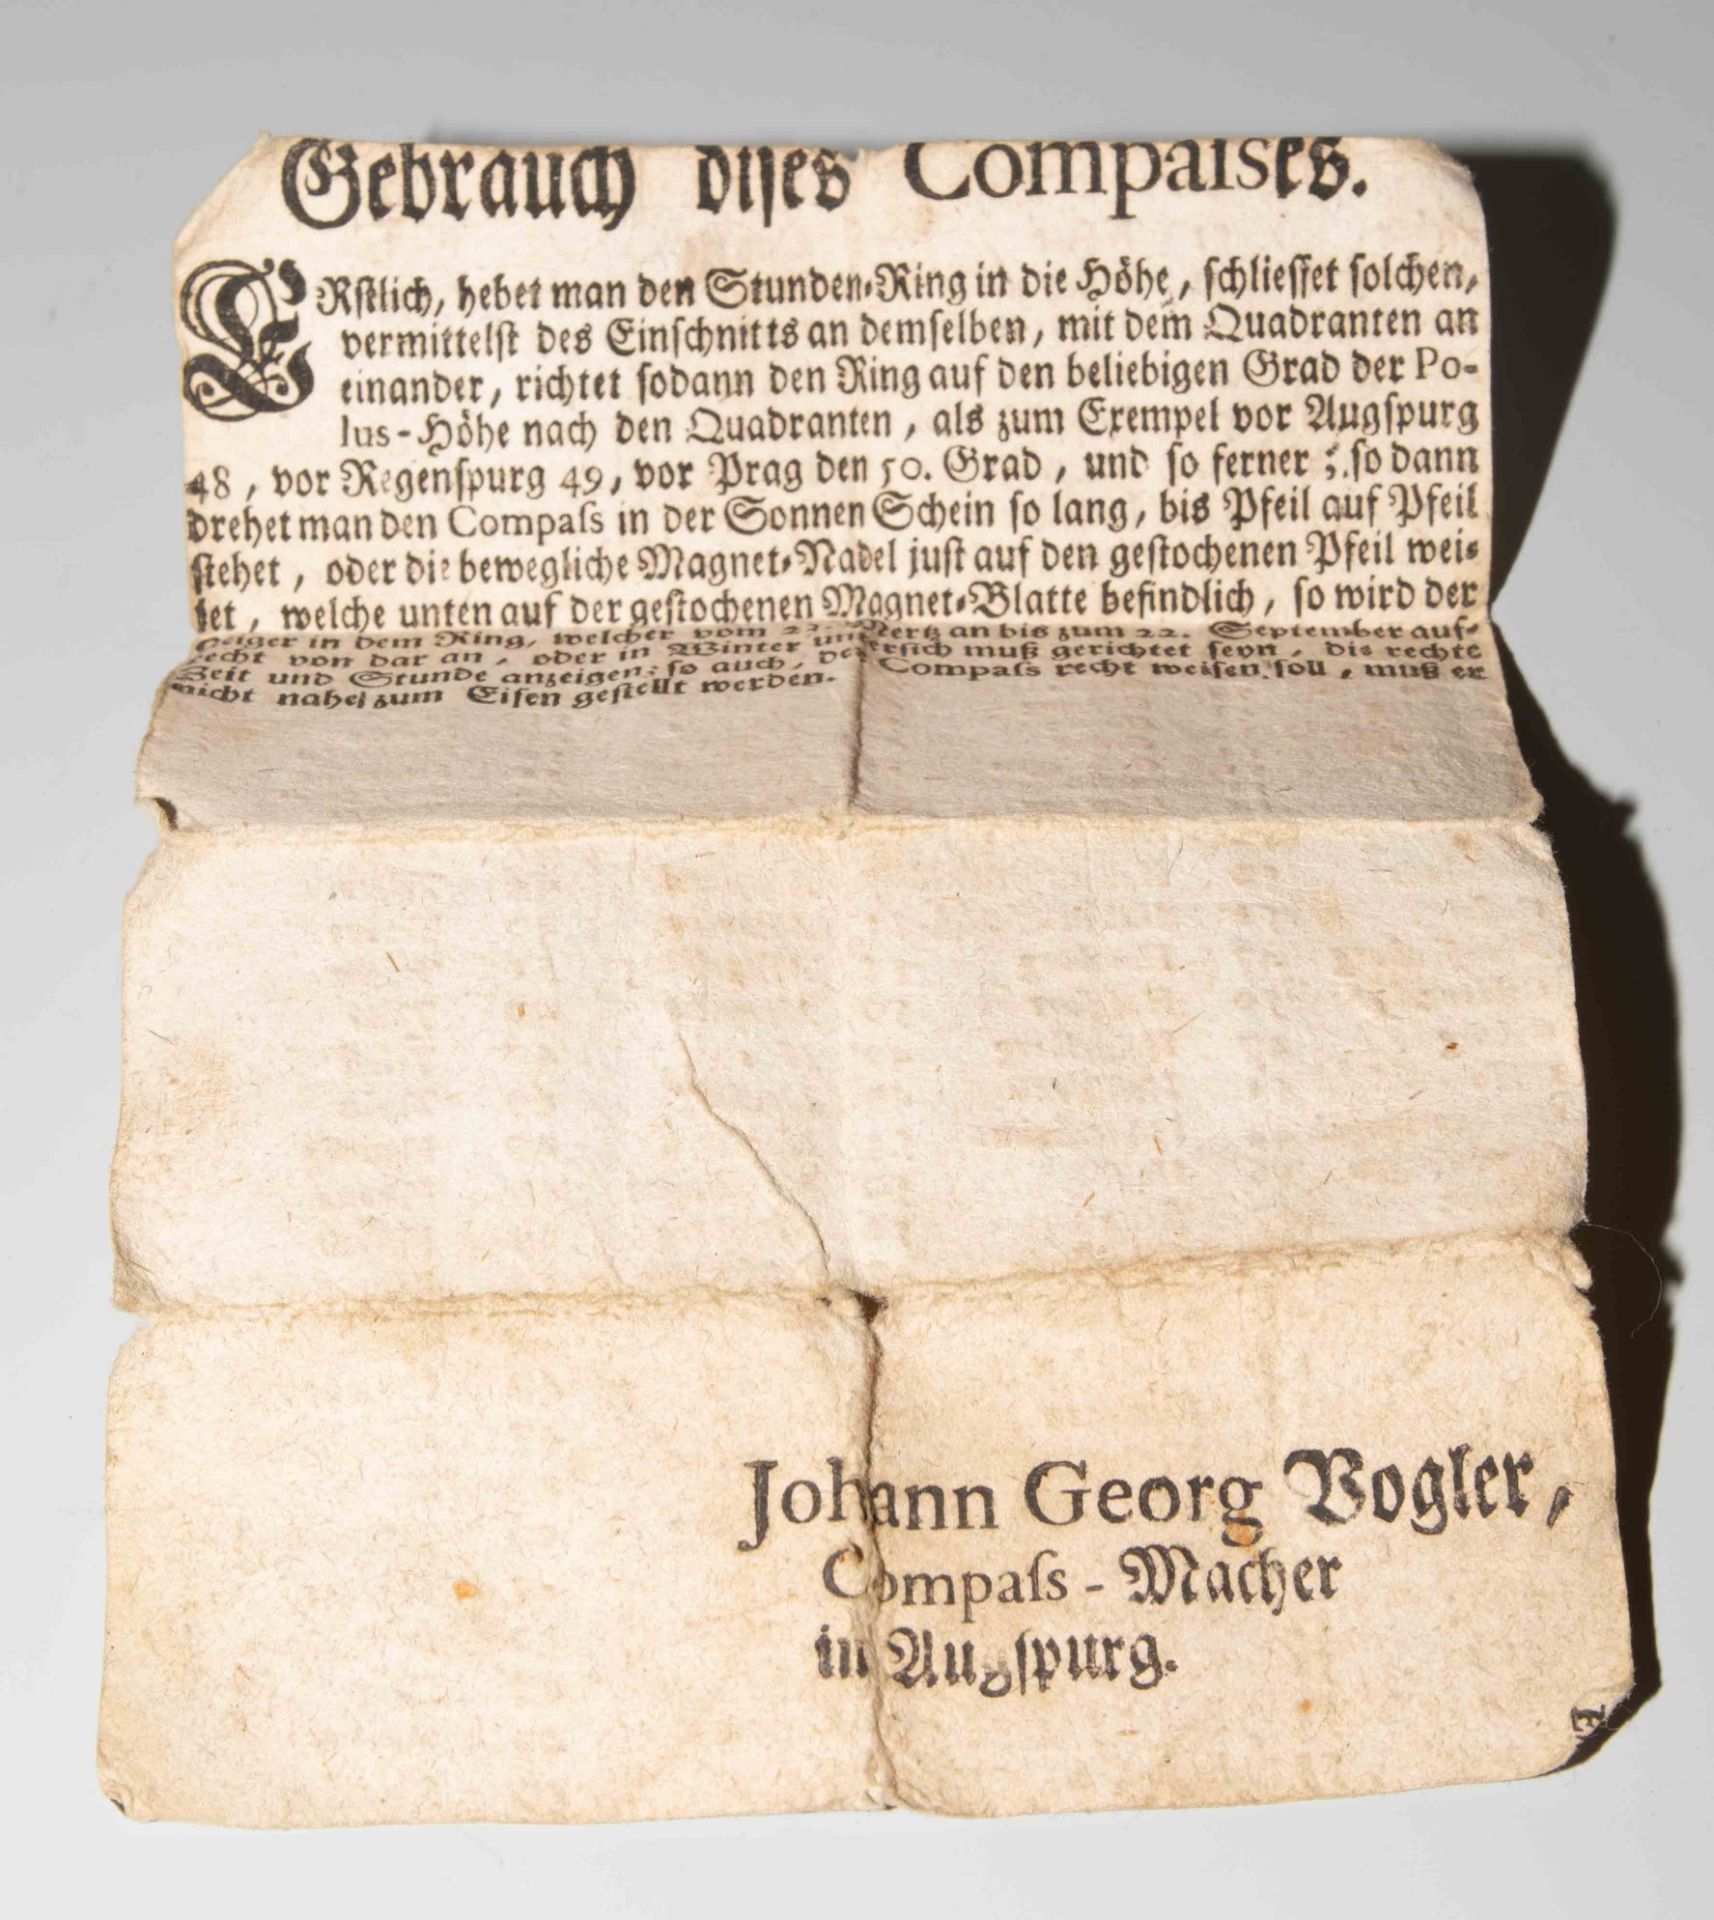 Gebrauch diſes Compaſses.
ERſtlich, hebet man den Stunden-Ring in die Höhe, ſchlieſſet ſolchen,
vermittelſt des Einſchnitts an demſelben, mit dem Quadranten an
einander, richtet ſodann den Ring auf den beliebigen Grad der Po-
lus-Höhe nach den Quadranten, als zum Exempel vor Augſpurg
48, vor Regenſpurg 49, vor Prag den 50. Grad, und ſo ferner; ſo dann
drehet man den Compaſs in der Sonnen Schein ſo lang, bis Pfeil auf Pfeil
ſtehet, oder die bewegliche Magnet-Nadel juſt auf den geſtochenen Pfeil wei-
ſet, welche unten auf der geſtochenen Magnet-Blatte befindlich, ſo wird der
Zeiger in dem Ring, welcher vom 22. Mertz an bis zum 22. September auf-
recht von dar an, oder in Winter unterſich muß gerichtet ſeyn, die rechte
Zeit und Stunde anzeigen; ſo auch, der Compaſs recht weiſen ſoll, muß er
nicht nahe zum Eiſen geſtellt werden.
Johann Georg Vogler,
Compaſs - Macher
in Augſpurg.